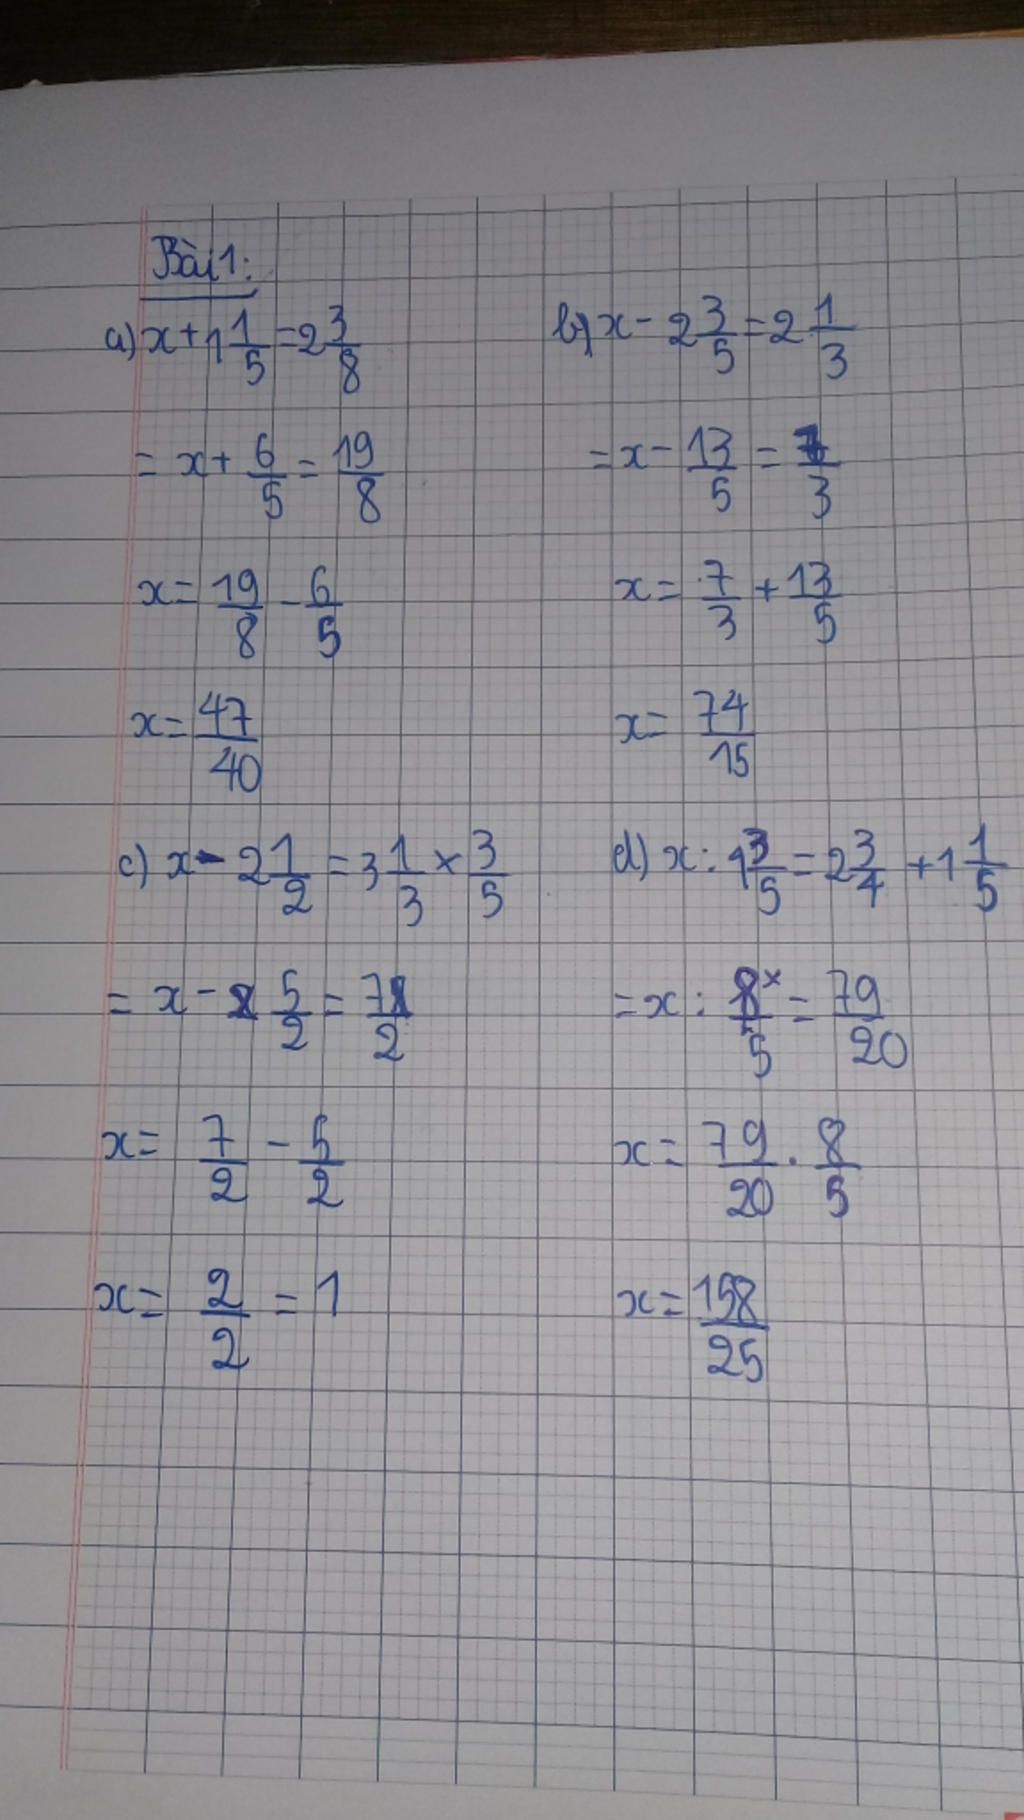 Bài 1:
a) x + 1 1/5 = 2 3/8
= x + 6/5 = 19/8
x = 19/8 - 6/5
x = 47/40
b) x - 2 3/5 = 2 1/3
= x - 13/5 = 7/3
x = 7/3 + 13/5
x = 74/15
c) x - 2 1/2 = 3 1/3 × 3/5
= x - 5/2 = 7/2
x = 7/2 - 5/2
x = 2/2 = 1
d) x : 1 3/5 = 2 3/4 + 1 1/5
= x : 8/5 = 79/20
x = 79/20 . 8/5
x = 158/25